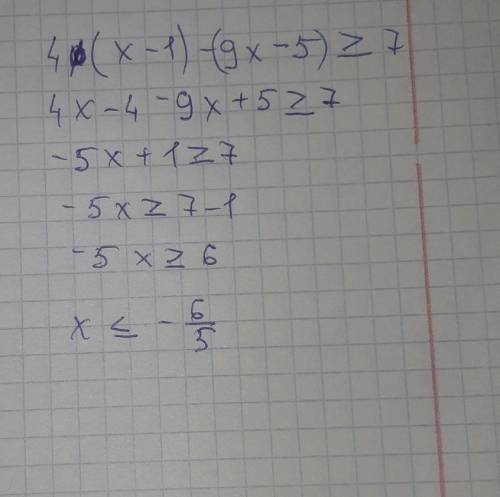 4(x-1)-(9x-5) ≥ 7
4x-4-9x+5≥7
-5x+1≥7
-5x≥7-1
-5x≥6
x ≤ -6/5